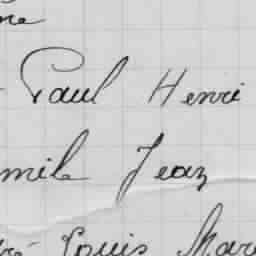 ne
Paul Henri
mile Jean
ré Louis Mar